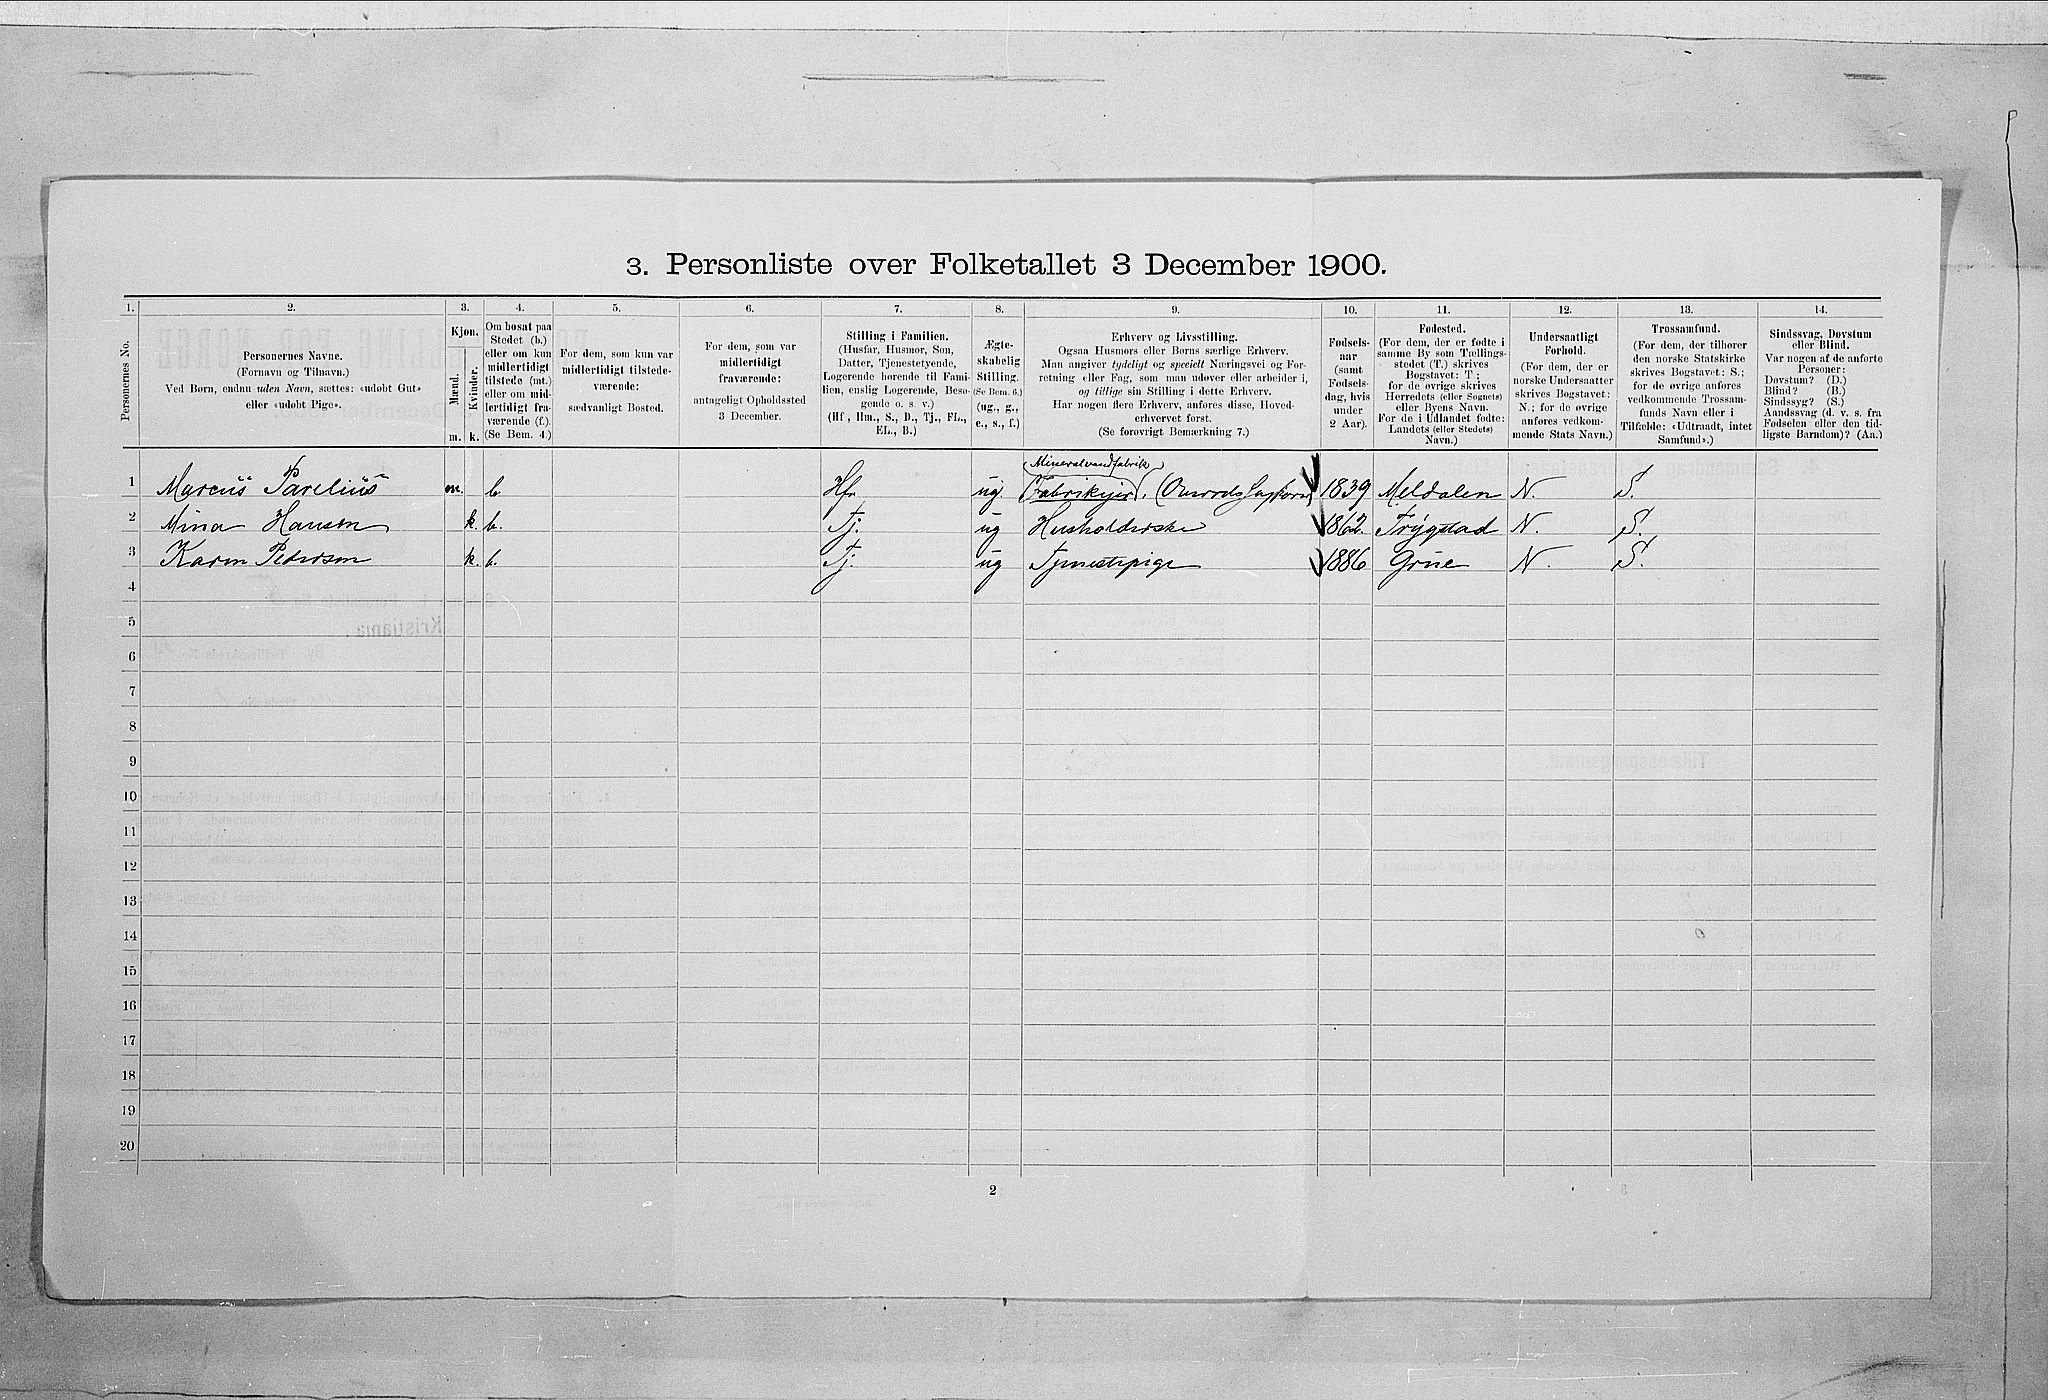 3. Personliste over Folketallet 3 December 1900.
1. 2. 3. 4. 5. 6. 7. 8. 9. 10. 11. 12. 13. 14.
Personernes No.
Personernes Navne.
(Fornavn og Tilnavn.)
Ved Børn, endnu uden Navn, sættes: «udøbt Gut»
eller «udøbt Pige».
Kjøn.
Mænd.
Kvinder.
m. k.
Om bosat paa
Stedet (b.)
eller om kun
midlertidigt
tilstede (mt.)
eller om mid-
lertidigt fra-
værende (f.).
(Se Bem. 4.)
For dem, som kun var
midlertidigt tilstede-
værende:
sædvanligt Bosted.
For dem, som var
midlertidigt
fraværende:
antageligt Opholdssted
3 December.
Stilling i Familien.
(Husfar, Husmor, Søn,
Datter, Tjenestetyende,
Logerende hørende til Fami-
lien, enslig Logerende, Besø-
gende o. s. v.)
(Hf, Hm., S., D., Tj., FL.,
EL., B.)
Ægte-
skabelig
Stilling.
(Se Bem. 6.)
(ug., g.,
e., s., f.)
Erhverv og Livsstilling.
Ogsaa Husmors eller Børns særlige Erhverv.
Man angiver tydeligt og specielt Næringsvei og For-
retning eller Fag, som man udøver eller arbeider i,
og tillige sin Stilling i dette Erhverv.
Har nogen flere Erhverv, anføres disse, Hoved-
erhvervet først.
(Se forøvrigt Bemærkning 7.)
Fødsels-
aar
(samt
Fødsels-
dag, hvis
under
2 Aar).
Fødested.
(For dem, der er fødte i
samme By som Tællings-
stedet (T.) skrives
Bogstavet: T;
for de øvrige skrives
Herredets (eller Sognets)
eller Byens Navn.
For de i Udlandet fødte:
Landets (eller Stedets)
Navn.)
Undersaatligt
Forhold.
(For dem, der er
norske Undersaatter
skrives Bogstavet:
N.; for de øvrige
anføres vedkom-
mende Stats Navn.)
Trossamfund.
(For dem, der tilhører
den norske Statskirke
skrives Bogstavet: S.;
for de øvrige anføres
vedkommende Trossam-
funds Navn eller i
Tilfælde: «Udtraadt, intet
Samfund».)
Sindssvag, Døvstum
eller Blind.
Var nogen af de anførte
Personer:
Døvstum? (D.)
Blind? (B.)
Sindssyg? (S.)
Aandssvag (d. v. s. fra
Fødselen eller den tid-
ligste Barndom)? (Aa.)
Mineralvandfabrik
1 Marcus Parelius m. b. Hf ug. Fabrikejer. 1839 Meldalen N. S.
2 Mina Hansen k. b. Tj. ug Husholderske 1862 Trygstad N. S.
3 Karen Pedersen k. b. Tj. ug Tjenestepige 1886 Grue N. S.
4
5
6
7
8
9
10
11
12
13
14
15
16
17
18
19
20
2